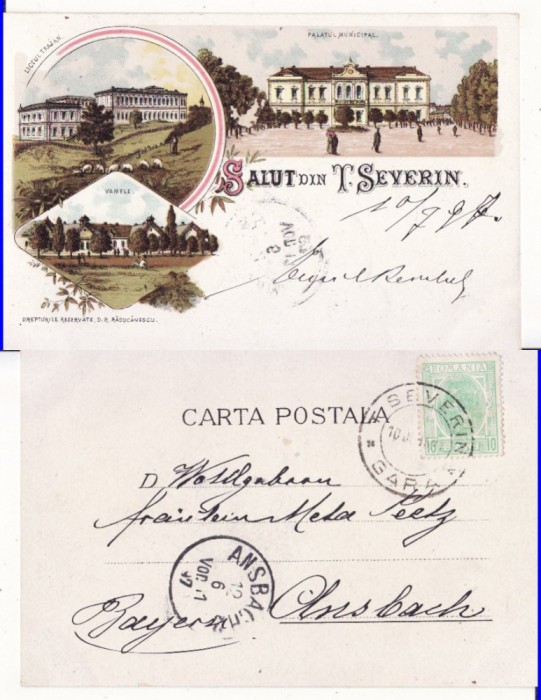 LICEUL TRAJAN.
PALATUL MUNICIPAL.
SALUT DIN T. SEVERIN.
VAMELE.
DREPTURILE RESERVATE. D. R. RĂDUCĂNESCU.
CARTA POSTALA
ROMANIA
10 10
SEVERIN
GARA
D Wohlgeboren
Fräulein Meta Seetz
ANSBACH
Bayern Ansbach